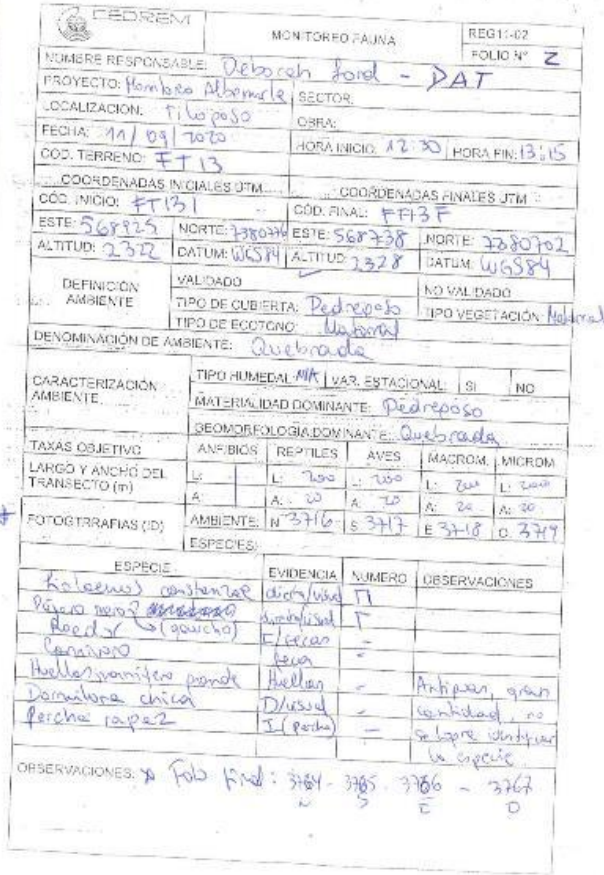 CEDREM
MONITOREO FAUNA
REG11-02
FOLIO N° 2
NOMBRE RESPONSABLE: Deborah Lord - DAT
PROYECTO: Monitoreo Albemarle SECTOR:
LOCALIZACION: Tilopozo OBRA:
FECHA: 11/09/2020 HORA INICIO: 12:30 HORA FIN: 13:15
COD. TERRENO: FT13
COORDENADAS INICIALES UTM COORDENADAS FINALES UTM
COD. INICIO: FT13I COD. FINAL: FT13F
ESTE: 568925 NORTE: 7380776 ESTE: 568738 NORTE: 7380702
ALTITUD: 2322 DATUM: WGS84 ALTITUD: 2328 DATUM: WGS84
DEFINICIÓN AMBIENTE
VALIDADO NO VALIDADO
TIPO DE CUBIERTA: Pedregoso TIPO VEGETACIÓN: Matorral
TIPO DE ECOTONO: Matorral
DENOMINACIÓN DE AMBIENTE: Quebrada
CARACTERIZACIÓN AMBIENTE
TIPO HUMEDAL: N/A VAR. ESTACIONAL: SI NO
MATERIALIDAD DOMINANTE: Pedregoso
GEOMORFOLOGIA DOMINANTE: Quebrada
TAXAS OBJETIVO ANFIBIOS REPTILES AVES MACROM. MICROM
LARGO Y ANCHO DEL TRANSECTO (m)
L: L: 200 L: 200 L: 200 L: 200
A: A: 20 A: 20 A: 20 A: 20
FOTOGTRRAFIAS (ID) AMBIENTE: N 3716 S 3717 E 3718 O 3719
ESPECIES:
ESPECIE EVIDENCIA NUMERO OBSERVACIONES
constanzae
Roedor F/fecas -
Carnivoro fecas -
Huellas mamifero grande Huellas - Antiguas, gran
Dormilona chica D/visual cantidad, no
Percha rapaz I (percha) - se logra identificar
la especie
OBSERVACIONES: * Foto final: 3764 - 3765 - 3766 - 3767
N S E O